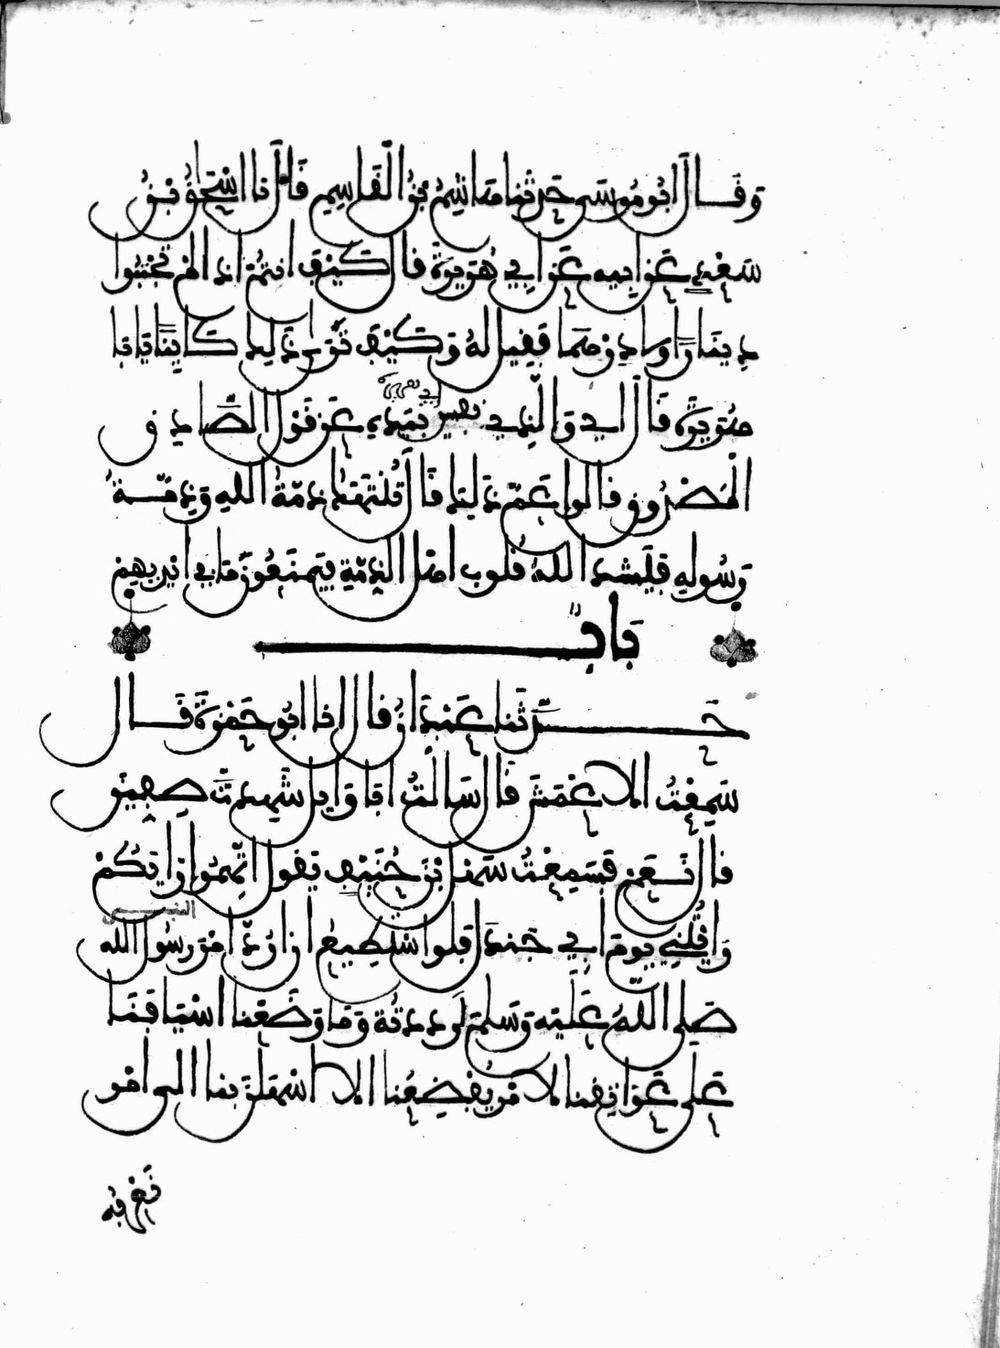 وَقَالَ أَبُو مُوسَى حَدَّثَنَا هَاشِمُ بْنُ الْقَاسِمِ قَالَ نا إِسْحَقُ بْنُ
سَعِيدٍ عَنْ أَبِيهِ عَنْ أَبِي هُرَيْرَةَ قَالَ كَيْفَ أَنْتُمْ إِذَا لَمْ تَجْتَبُوا
دِينَارًا وَلَا دِرْهَمًا فَقِيلَ لَهُ وَكَيْفَ تَرَى ذَلِكَ كَائِنًا يَا أَبَا
هُرَيْرَةَ قَالَ إِي وَالَّذِي نَفْسُ أَبِي هُرَيْرَةَ بِيَدِهِ عَنْ قَوْلِ الصَّادِقِ
الْمَصْدُوقِ قَالُوا عَمَّ ذَلِكَ قَالَ تُنْتَهَكُ ذِمَّةُ اللهِ وَذِمَّةُ
رَسُولِهِ فَيَشُدُّ اللهُ قُلُوبَ أَهْلِ الذِّمَّةِ فَيَمْنَعُونَ مَا فِي أَيْدِيهِمْ
بَابٌ
حَدَّثَنَا عَبْدَانُ قَالَ أنا أَبُو حَمْزَةَ قَالَ
سَمِعْتُ الْأَعْمَشَ قَالَ سَأَلْتُ أَبَا وَائِلٍ شَهِدْتَ صِفِّينَ
قَالَ نَعَمْ فَسَمِعْتُ سَهْلَ بْنَ حُنَيْفٍ يَقُولُ اتَّهِمُوا رَأْيَكُمْ
رَأَيْتُنِي يَوْمَ أَبِي جَنْدَلٍ فَلَوْ أَسْتَطِيعُ أَنْ أَرُدَّ أَمْرَ رَسُولِ اللهِ
صَلَّى اللهُ عَلَيْهِ وَسَلَّمَ لَرَدَدْتُهُ وَمَا وَضَعْنَا أَسْيَافَنَا
عَلَى عَوَاتِقِنَا لِأَمْرٍ يُفْظِعُنَا إِلَّا أَسْهَلْنَ بِنَا إِلَى أَمْرٍ
نَعْرِفُهُ